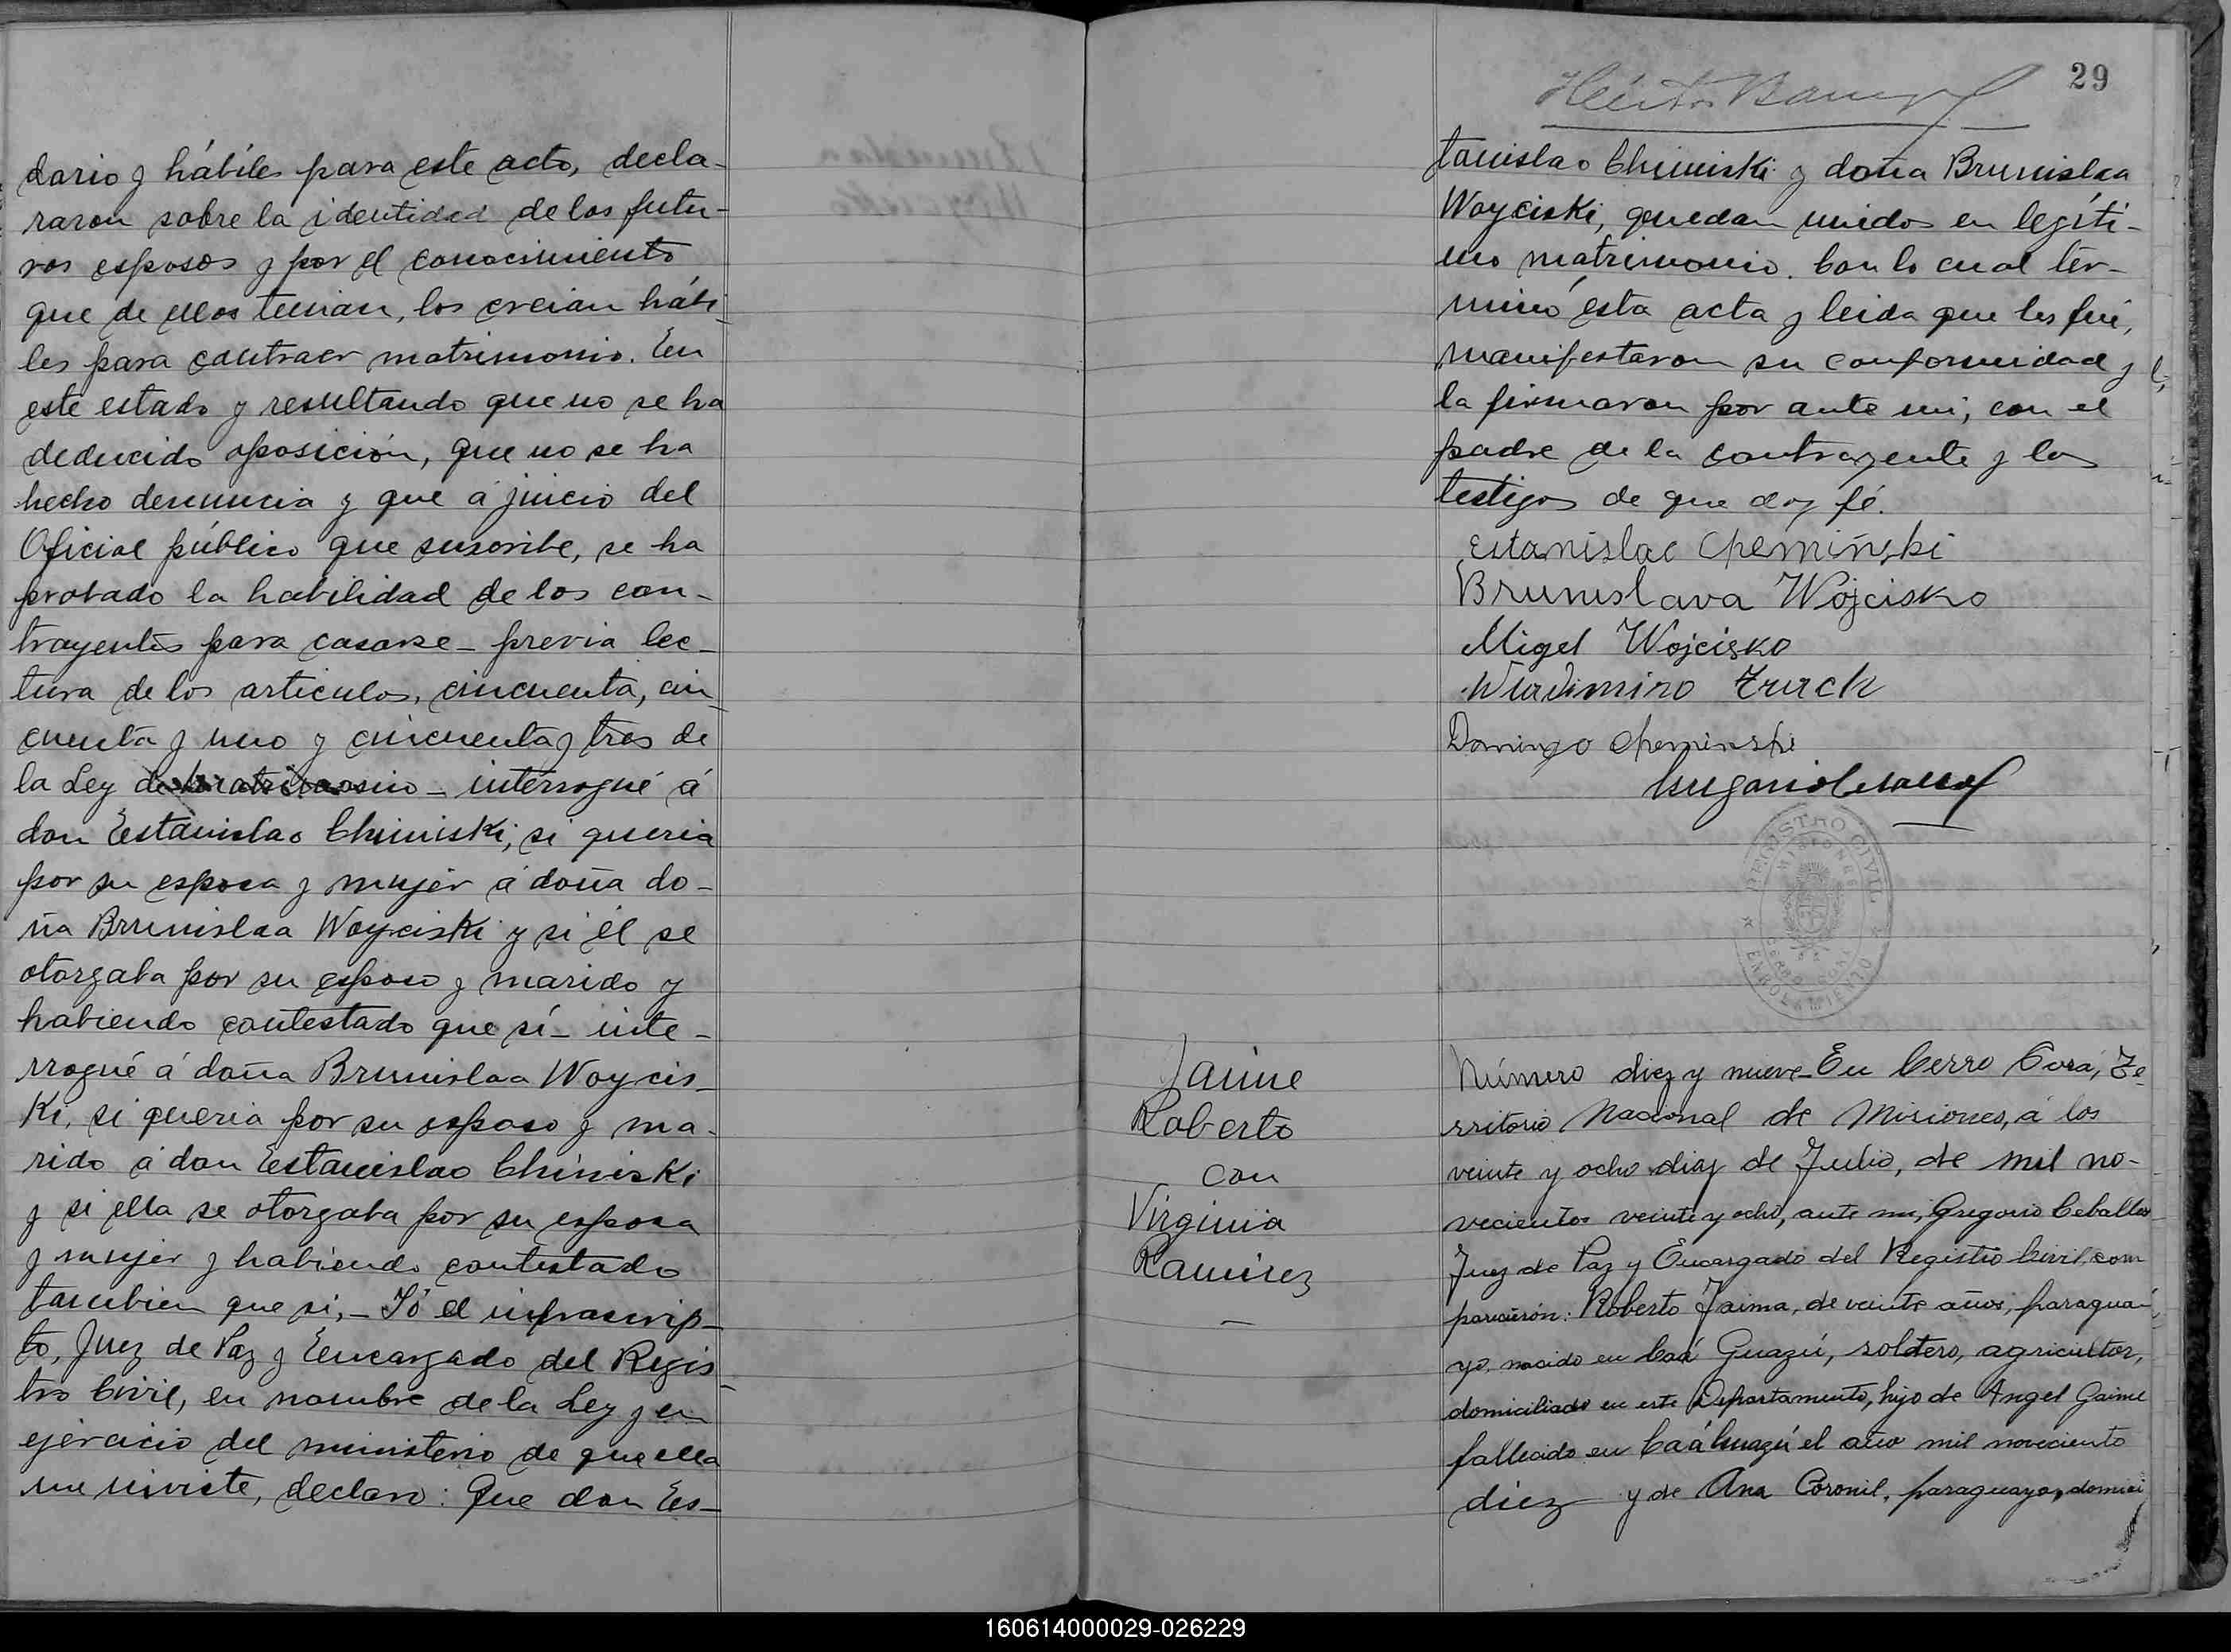 dario y hábiles para este acto, decla-
raron sobre la identidad de los futu-
ros esposos y por el conocimiento
que de ellos tenian, los creian hábi-
les para contraer matrimonio. En
este estado y resultando que no se ha
deducido oposición, que no se ha
hecho denuncia y que á juicio del
Oficial público que suscribe, se ha
probado la habilidad de los con-
trayentes para casarse - previa lec-
tura de los articulos, cincuenta, cin
cuenta y uno y cincuenta y tres de
la Ley de matrimonio - interrogué á
don Estanislao Chiniski, si queria
por su esposa y mujer á doña do-
ña Brunislaa Woyciski y si él se
otorgaba por su esposo y marido y
habiendo contestado que sí - inte-
rrogué á doña Brunislaa Woycis-
ki, si queria por su esposo y ma-
rido á don Estanislao Chiniski
y si ella se otorgaba por su esposa
y mujer y habiendo contestado
tambien que si, - Yó el infrascrip-
to, Juez de Paz y Encargado del Regis
tro Civil, en nombre de la Ley y en
ejercicio del ministerio de que ella
me inviste, declaro: Que don Es-
29
tanislao Chiniski y doña Brunislaa
Woyciski, quedan unidos en legíti-
mo matrimonio. Con lo cual ter-
minó esta acta y leida que les fué,
manifestaron su conformidad y
la firmaron por ante mi, con el
padre de la contrayente y los
testigos de que doy fé.
Estanislao Chemiński
Brunislava Wojcisko
Migel Wojcisko
Wladimiro
Domingo Cheminski
REGISTRO CIVIL
MISIONES
CERRO CORÁ
ENROLAMIENTO
Jaime
Roberto
con
Virginia
Ramirez
Número diez y nueve - En Cerro Corá, Te-
rritorio Nacional de Misiones, á los
veinte y ocho dias de Julio, de mil no-
vecientos veinte y ocho, ante mi, Gregorio Ceballos
Juez de Paz y Encargado del Registro Civil, com
parecieron: Roberto Jaima, de veinte años, paragua-
yo, nacido en Caá Guazú, soltero, agricultor,
domiciliado en este Departamento, hijo de Angel Gaime
fallecido en Caá Guazú el año mil noveciento
diez y de Ana Coronil, paraguaya, domici
160614000029-026229